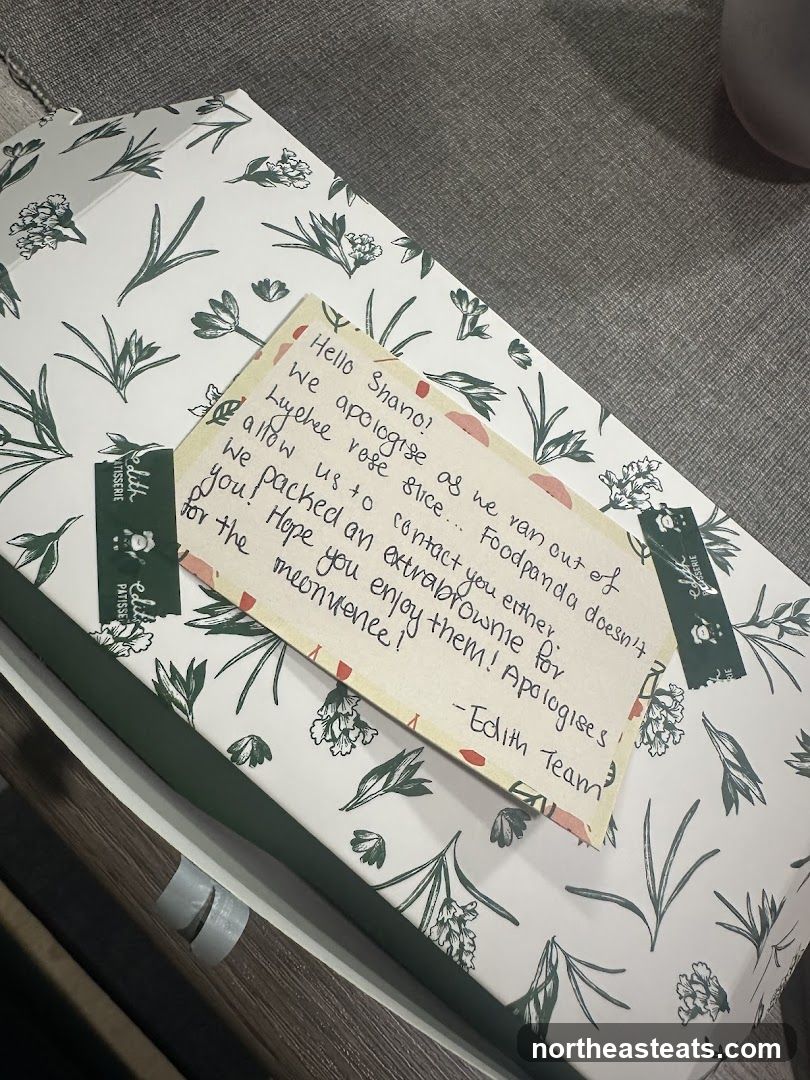 Hello Shano!
We apologise as we ran out of
Lychee rose slice... Foodpanda doesn't
allow us to contact you either.
We packed an extra brownie for
you! Hope you enjoy them! Apologises
for the inconvience!
-Edith Team
edith
PATISSERIE
edith
PATISSE
edith
PATISSERIE
northeasteats.com